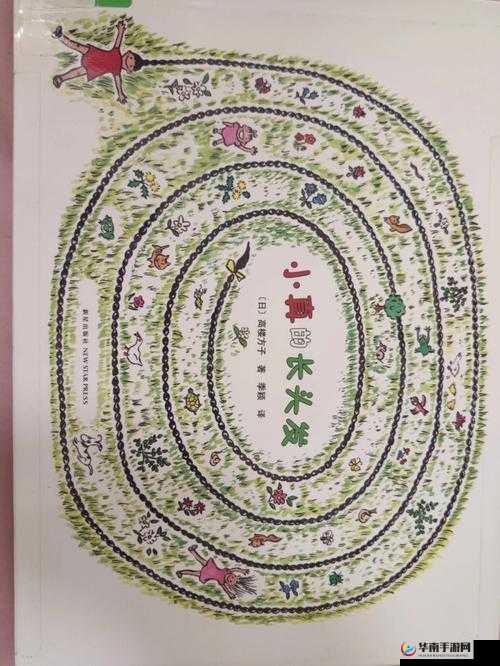 小真的长头发
〔日〕高楼方子 著 季颖 译
新星出版社 NEW STAR PRESS
华南手游网